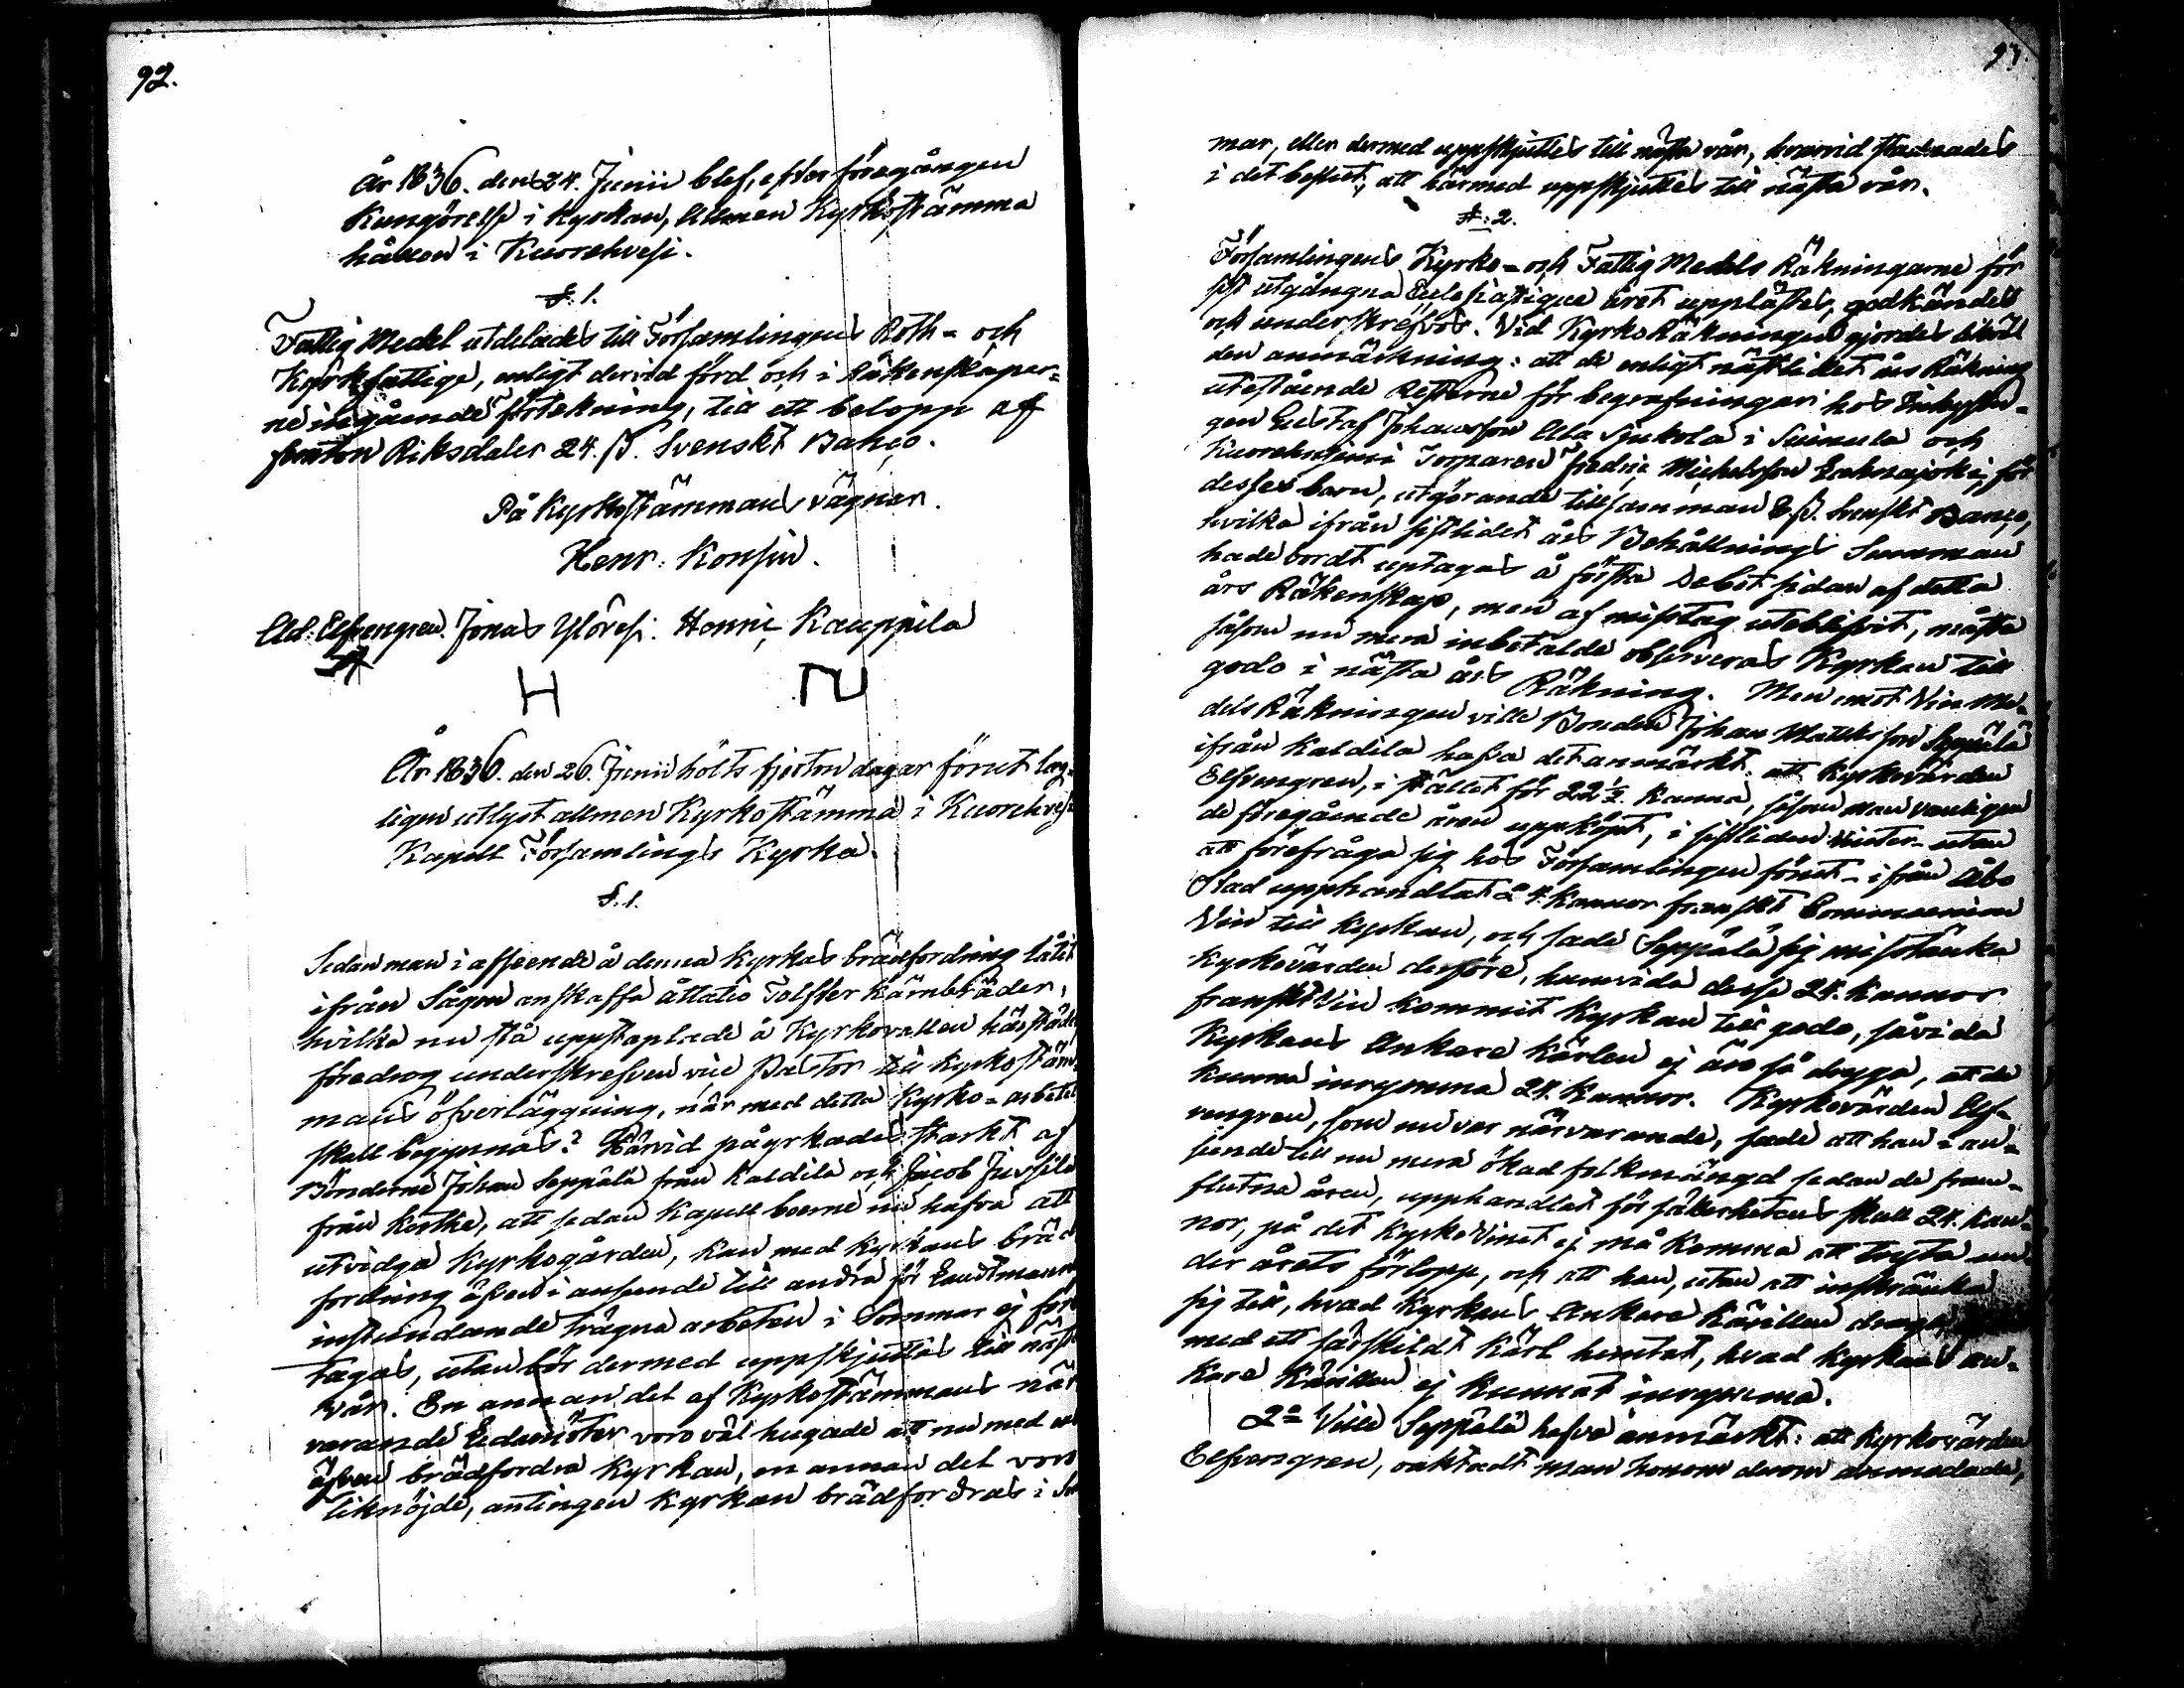 92.
År 1836. den 24. Junii blef, efter föregången
Kungörelse i Kyrkan, Allmen Kyrkostämma
hållen i Kuorehvesi.
§. 1.
Fattig Medel utdelades till Församlingens Roth- och
Kyrkfattige, enligt dervid förd och i Räkenskaper-
ne ingående förtekning, till ett belopp af
femton Riksdaler 24. ß. Svenskt Banco.
På Kyrkostämmans vägnar.
Henr: Konsin.
Ad: Elfvengren. Jonas Ylövesi. Henric Kauppila
H
År 1836. den 26. Junii hölts fjorton dagar förut lag-
ligen utlyst allmen Kyrkostämma i Kuorehvesi
Kapell Församlings Kyrka.
§. 1.
Sedan man i afseende å denna Kyrkas brädfordning låtit
ifrån Sågen anskaffa åttatio Tolfter Kärnbräder,
hvilka nu stå uppstaplade å Kyrkovallen härstädes
föredrog underskrefven vice Pastor till Kyrkostäm-
mans öfverläggning, når med detta Kyrko-arbete
skall begynnas? Härvid påyrkades starkt af
Bönderne Johan Seppälä från Kaldila och Jacob Jussila
från Korthe, att sedan Kapell boerne nu hafva att
utvidga Kyrkogården, kan med Kyrkans bräd
fordning äfven i anseende till andra för Landtmannen
instundande trägna arbeten i Sommar ej före
tagas, utan bör dermed uppskjuttas till nästa
vår. En annan del af Kyrkostämmans när
varande Ledamöter voro väl hugade att nu med
äfven brädfordra Kyrkan, en annan del voro
liknöjde, antingen Kyrkan brädfordras i Som
93.
mar, eller dermed uppskjuttes till nästa vår, hvarvid stadnades
i det beslut, att härmed uppskjuttes till nästa vår.
§. 2.
Församlingens Kyrko- och Fattig Medels Räkningarne för
sist utgångna Ecclesiastique året upplästes, godkändes
och underskrefvos. Vid Kyrko Räkningen gjordes likväl
den anmärkning: att de enligt nästlidet års Räkning
utestående Resterne för begrafningar hos Inhysin-
gen Gustaf Johansson Ala Sjukola i Suinula och
Torparen Fredric Michelsson för
desses barn, utgörande tillsamman 8 ß. Svenskt Banco,
hvilka ifrån sistlidet års Behållnings Summan
hade bordt uptagas å första Debet sidan af detta
års Räkenskap, men af misstag uteblifvit, måste
såsom nu mera inbetalde observeras Kyrkan till
godo i nästa års Räkning. Men emot Vin Me-
dels Räkningen ville Bonden Johan Mattsson Seppälä
ifrån Kaldila hafva det anmärkt: att Kyrkovärden
Elfvengren, i stället för 22 ½ Kanna, såsom man vanligen
de föregående åren uppköpt, i sistliden vinter - utan
att förefråga sig hos Församlingen förut - ifrån Åbo
Stad upphandlat 24. Kannor franskt Communion
Vin till Kyrkan, och sade Seppälä sig misstänka
Kyrkovärden derföre, huruvida desse 24. Kannor
franskt Vin kommit Kyrkan till godo, såvida
Kyrkans Ankare Kärlen ej äro så dryga, att de
kunna inrymma 24. Kannor. Kyrkovärden Elf-
vengren, som nu var närvarande, sade att han i an-
seende till nu mera ökad folkmängd sedan de fram-
flutna åren, upphandlat för säkerhetens skull 24. Kan-
nor, på det Kyrko Vinet ej må komma att tryta un-
der årets förlopp, och att han, utan att inskränka
sig till, hvad Kyrkans Ankare Kärillen
med ett särskildt Kärl hemtat, hvad Kyrkans an-
kare Kärillen ej kunnat inrymma.
2º Ville Seppälä hafva anmärkt: att Kyrkovärden
Elfvengren, oaktadt man honom derom anmodade,